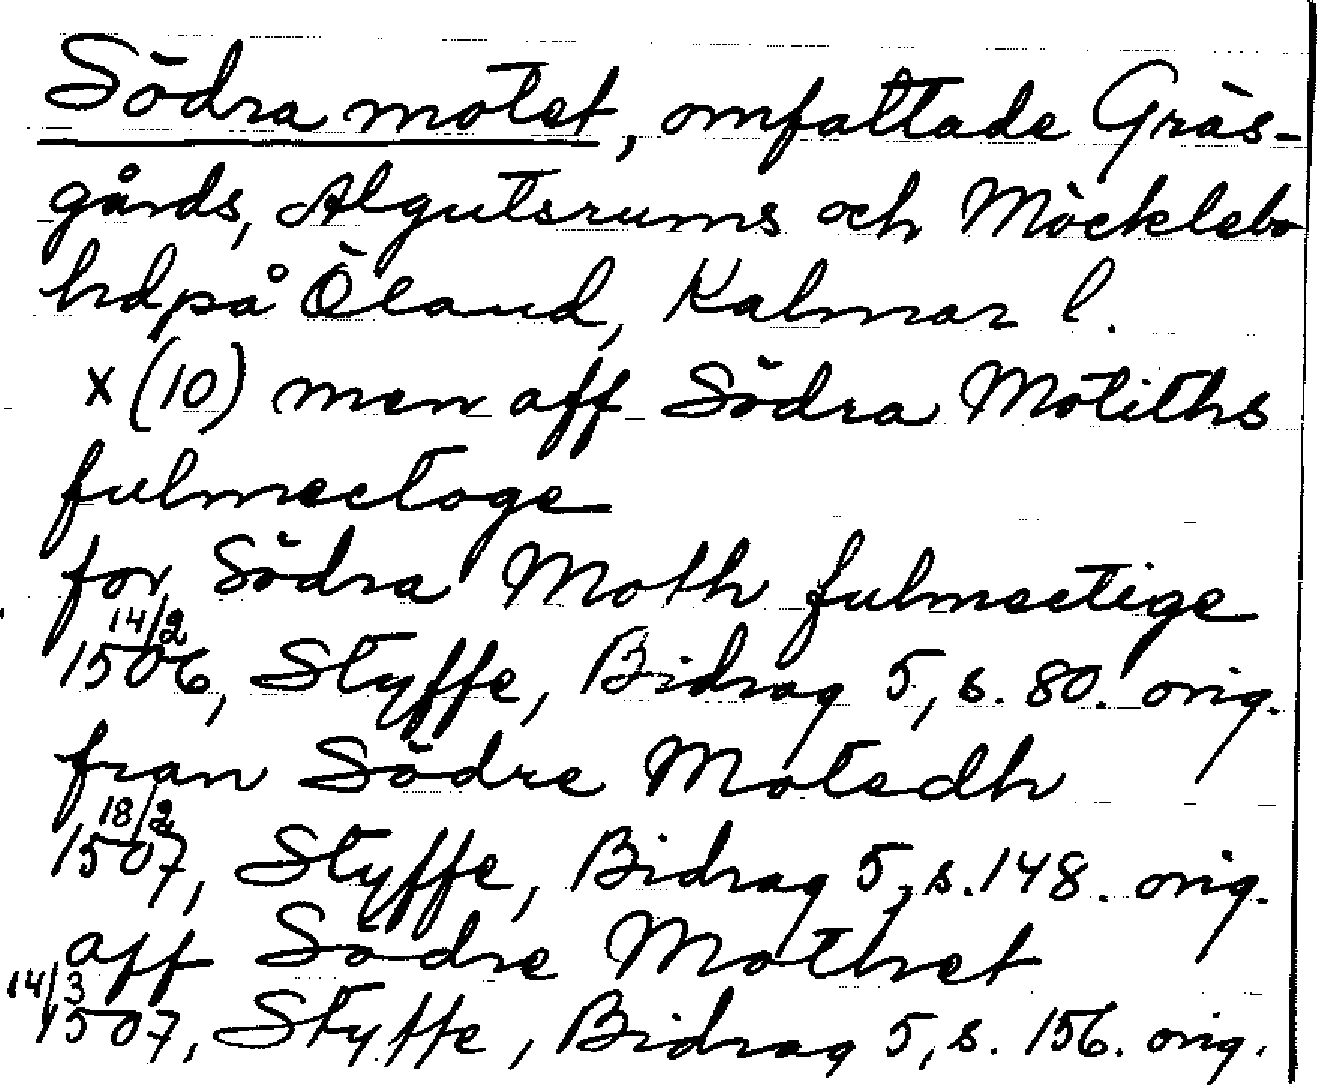 Södra motet, omfattade Gräs-
gårds, Algutsrums och Möcklebo
hd på Öland, Kalmar l.
x (10) men aff Södra Motiths
fulmectoge
for Södra Moth fulmectige
14/2 1506, Styffe, Bidrag 5, s. 80. orig.
fran Södre Motedh
18/2 1507, Styffe, Bidrag 5, s. 148. orig.
aff Sodre Mothet
14/3 1507, Styffe, Bidrag 5, s. 156. orig.